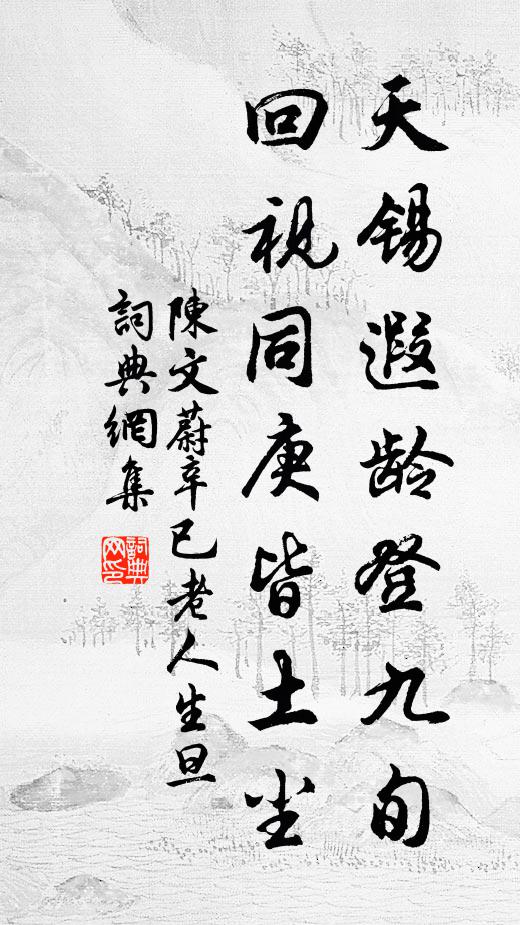 天锡遐龄登九旬
回视同庚皆土尘
陳文蔚辛巳老人生旦
詞典網集
詞典网印